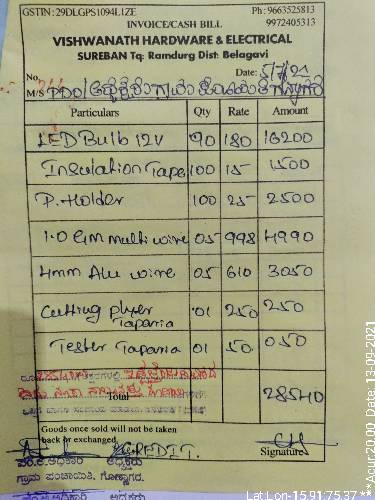 GSTIN : 29DLGPS1094L1ZE
Ph : 9663525813
9972405313
INVOICE/CASH BILL
VISHWANATH HARDWARE & ELECTRICAL
SUREBAN Tq: Ramdurg Dist: Belagavi
No.
Date: 5/7/21
M/S PDO/
Particulars Qty Rate Amount
LED Bulb 12V 90 180 16200
Insulation Tape 100 15 1500
P. Holder 100 25 2500
1.0 GM multi wire 05 998 4990
4mm Alu wire 05 610 3050
Cutting plyer Taparia 01 250 250
Tester Taparia 01 50 050
28540
Total 28540
Goods once sold will not be taken
back or exchanged.
CREDIT
Signature
ಅಧ್ಯಕ್ಷರು
ಗ್ರಾಮ ಪಂಚಾಯಿತಿ,
Lat:Lon-15917537 ***Acur 20.00, Date, 13-09-2021